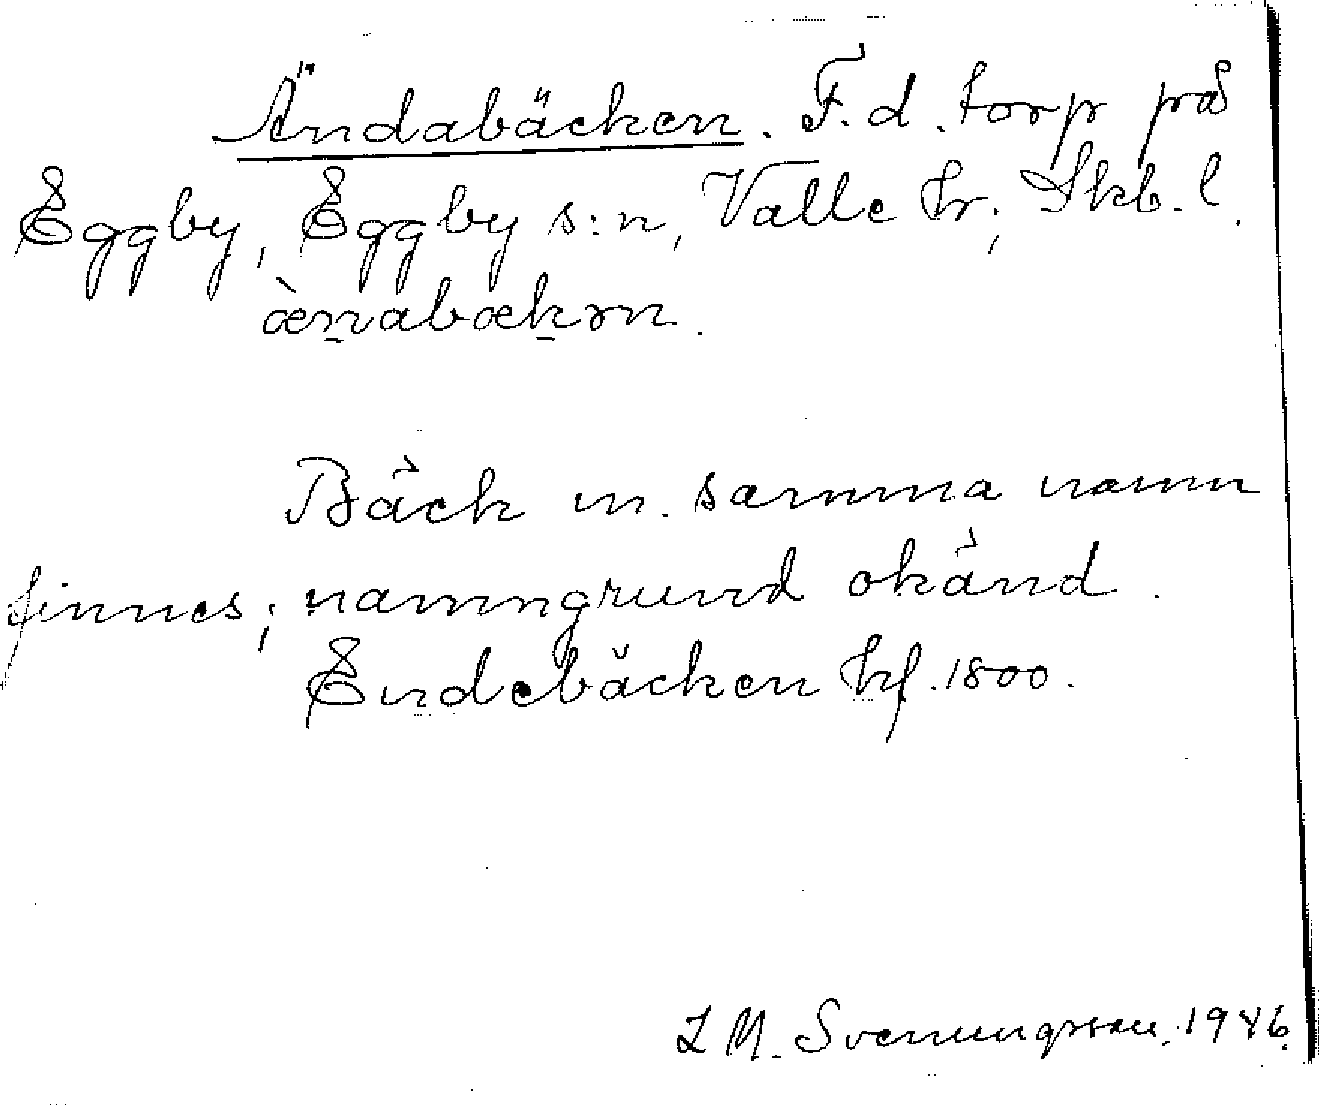 Ändabäcken. F.d. torp på
Eggby, Eggby s:n, Valle hr, Skb. l.
æ̀n̠abæk̠ən.
Bäck m. samma namn
finnes; namngrund okänd.
Endebäcken hf. 1800.
L M. Svenungsson. 1946.